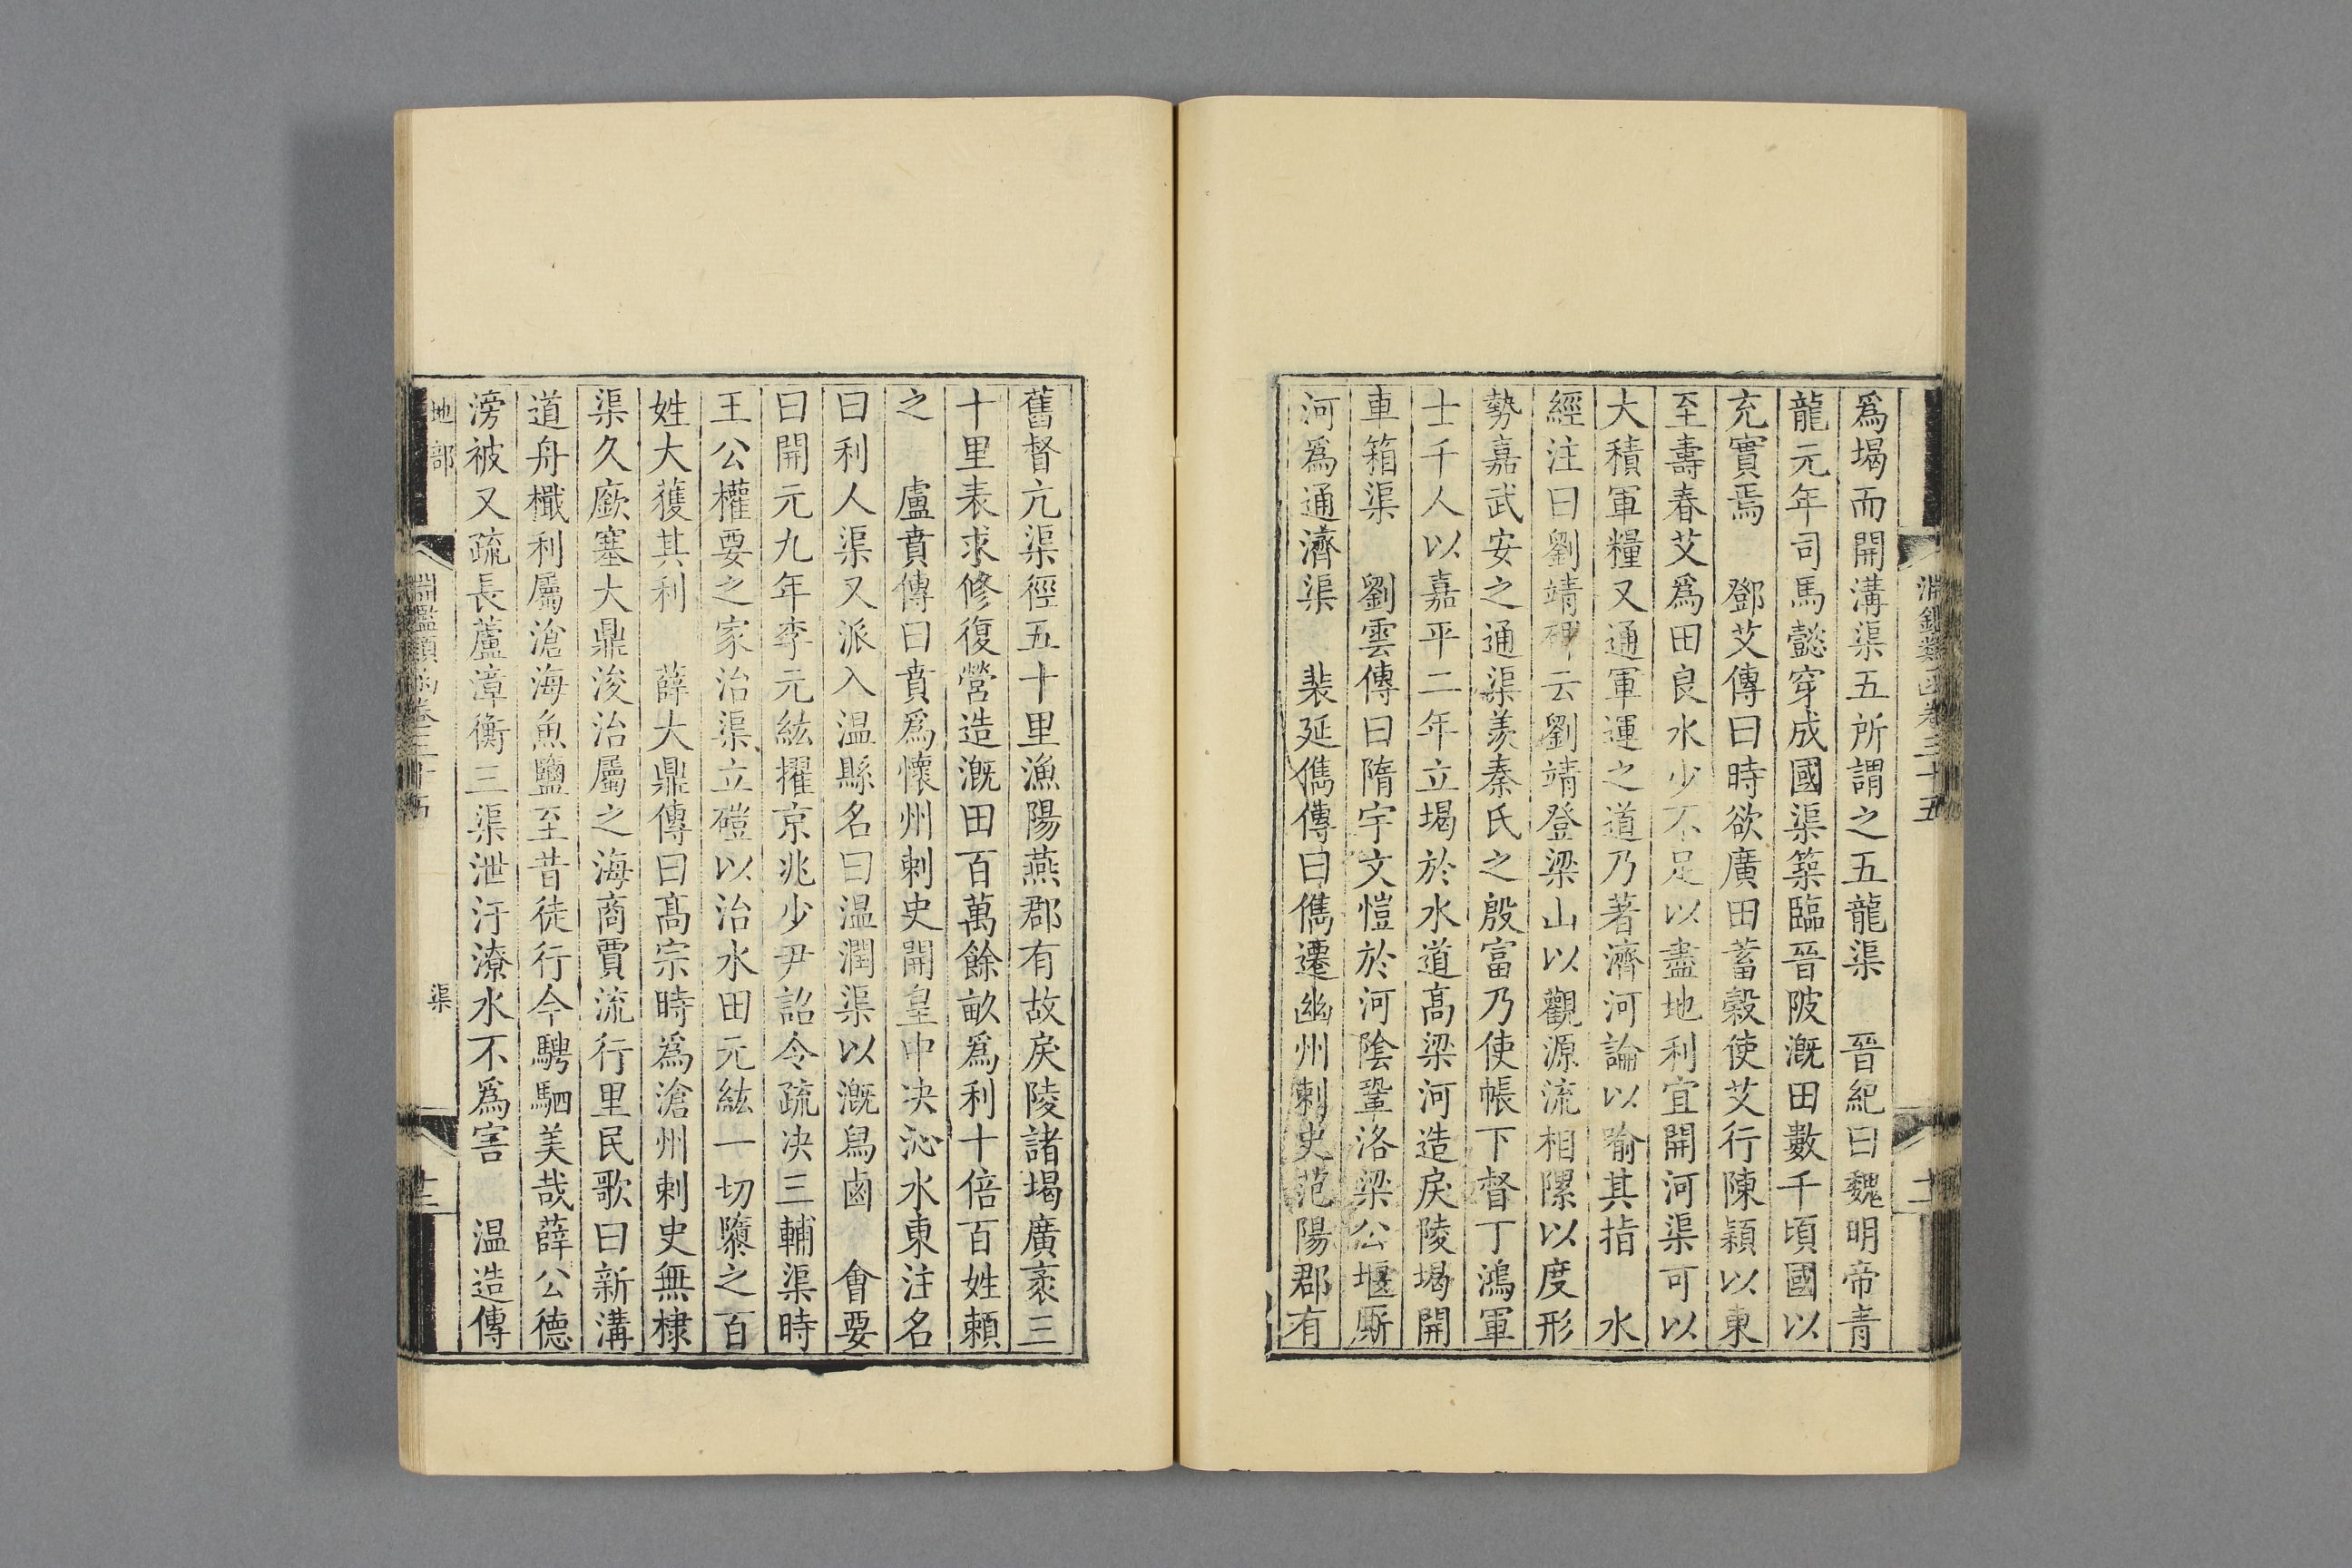 淵鑑類函卷三十五
爲堨而開溝渠五所謂之五龍渠　晉紀曰魏明帝青
龍元年司馬懿穿成國渠築臨晉陂漑田數千頃國以
充實焉　鄧艾傳曰時欲廣田蓄穀使艾行陳潁以東
至壽春艾爲田良水少不足以盡地利宜開河渠可以
大積軍糧又通軍運之道乃著濟河論以喻其指　水
經注曰劉靖碑云劉靖登梁山以觀源流相隰以度形
勢嘉武安之通渠羨秦氏之殷富乃使帳下督丁鴻軍
士千人以嘉平二年立堨於水道高梁河造戾陵堨開
車箱渠　劉雲傳曰隋宇文愷於河陰鞏洛梁公堰厮
河爲通濟渠　裴延儁傳曰儁遷幽州刺史范陽郡有
舊督亢渠徑五十里漁陽燕郡有故戾陵諸堨廣袤三
十里表求修復營造漑田百萬餘畝爲利十倍百姓賴
之　盧賁傳曰賁爲懷州刺史開皇中决沁水東注名
曰利人渠又派入温縣名曰温潤渠以漑舄鹵　會要
曰開元九年李元紘擢京兆少尹詔令疏决三輔渠時
王公權要之家治渠立磑以治水田元紘一切隳之百
姓大獲其利　薛大鼎傳曰高宗時爲滄州刺史無棣
渠久廞塞大鼎浚治屬之海商賈流行里民歌曰新溝
道舟檝利屬滄海魚鹽至昔徒行今騁駟美哉薛公德
滂被又疏長蘆漳衡三渠泄汙潦水不爲害　温造傳
地部　淵鑑類函卷三十五　渠